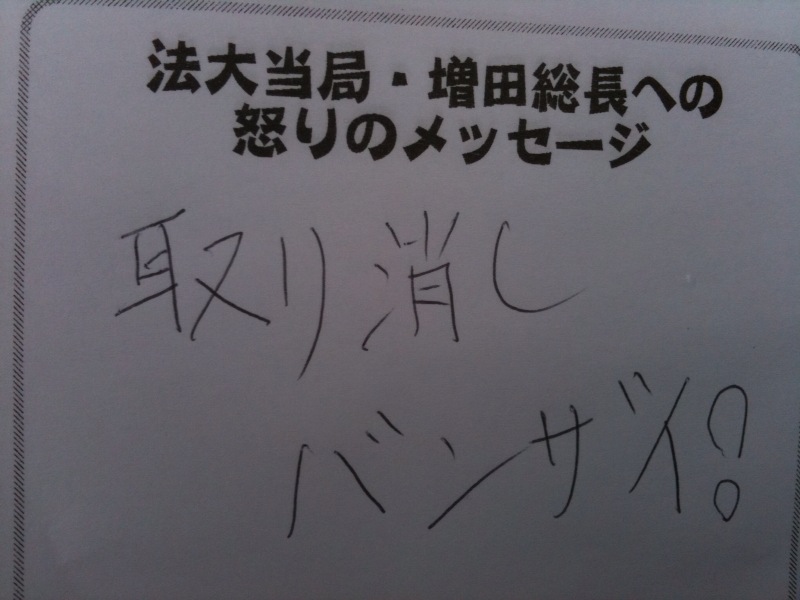 法大当局・増田総長への
怒りのメッセージ
取り消し
バンザイ!